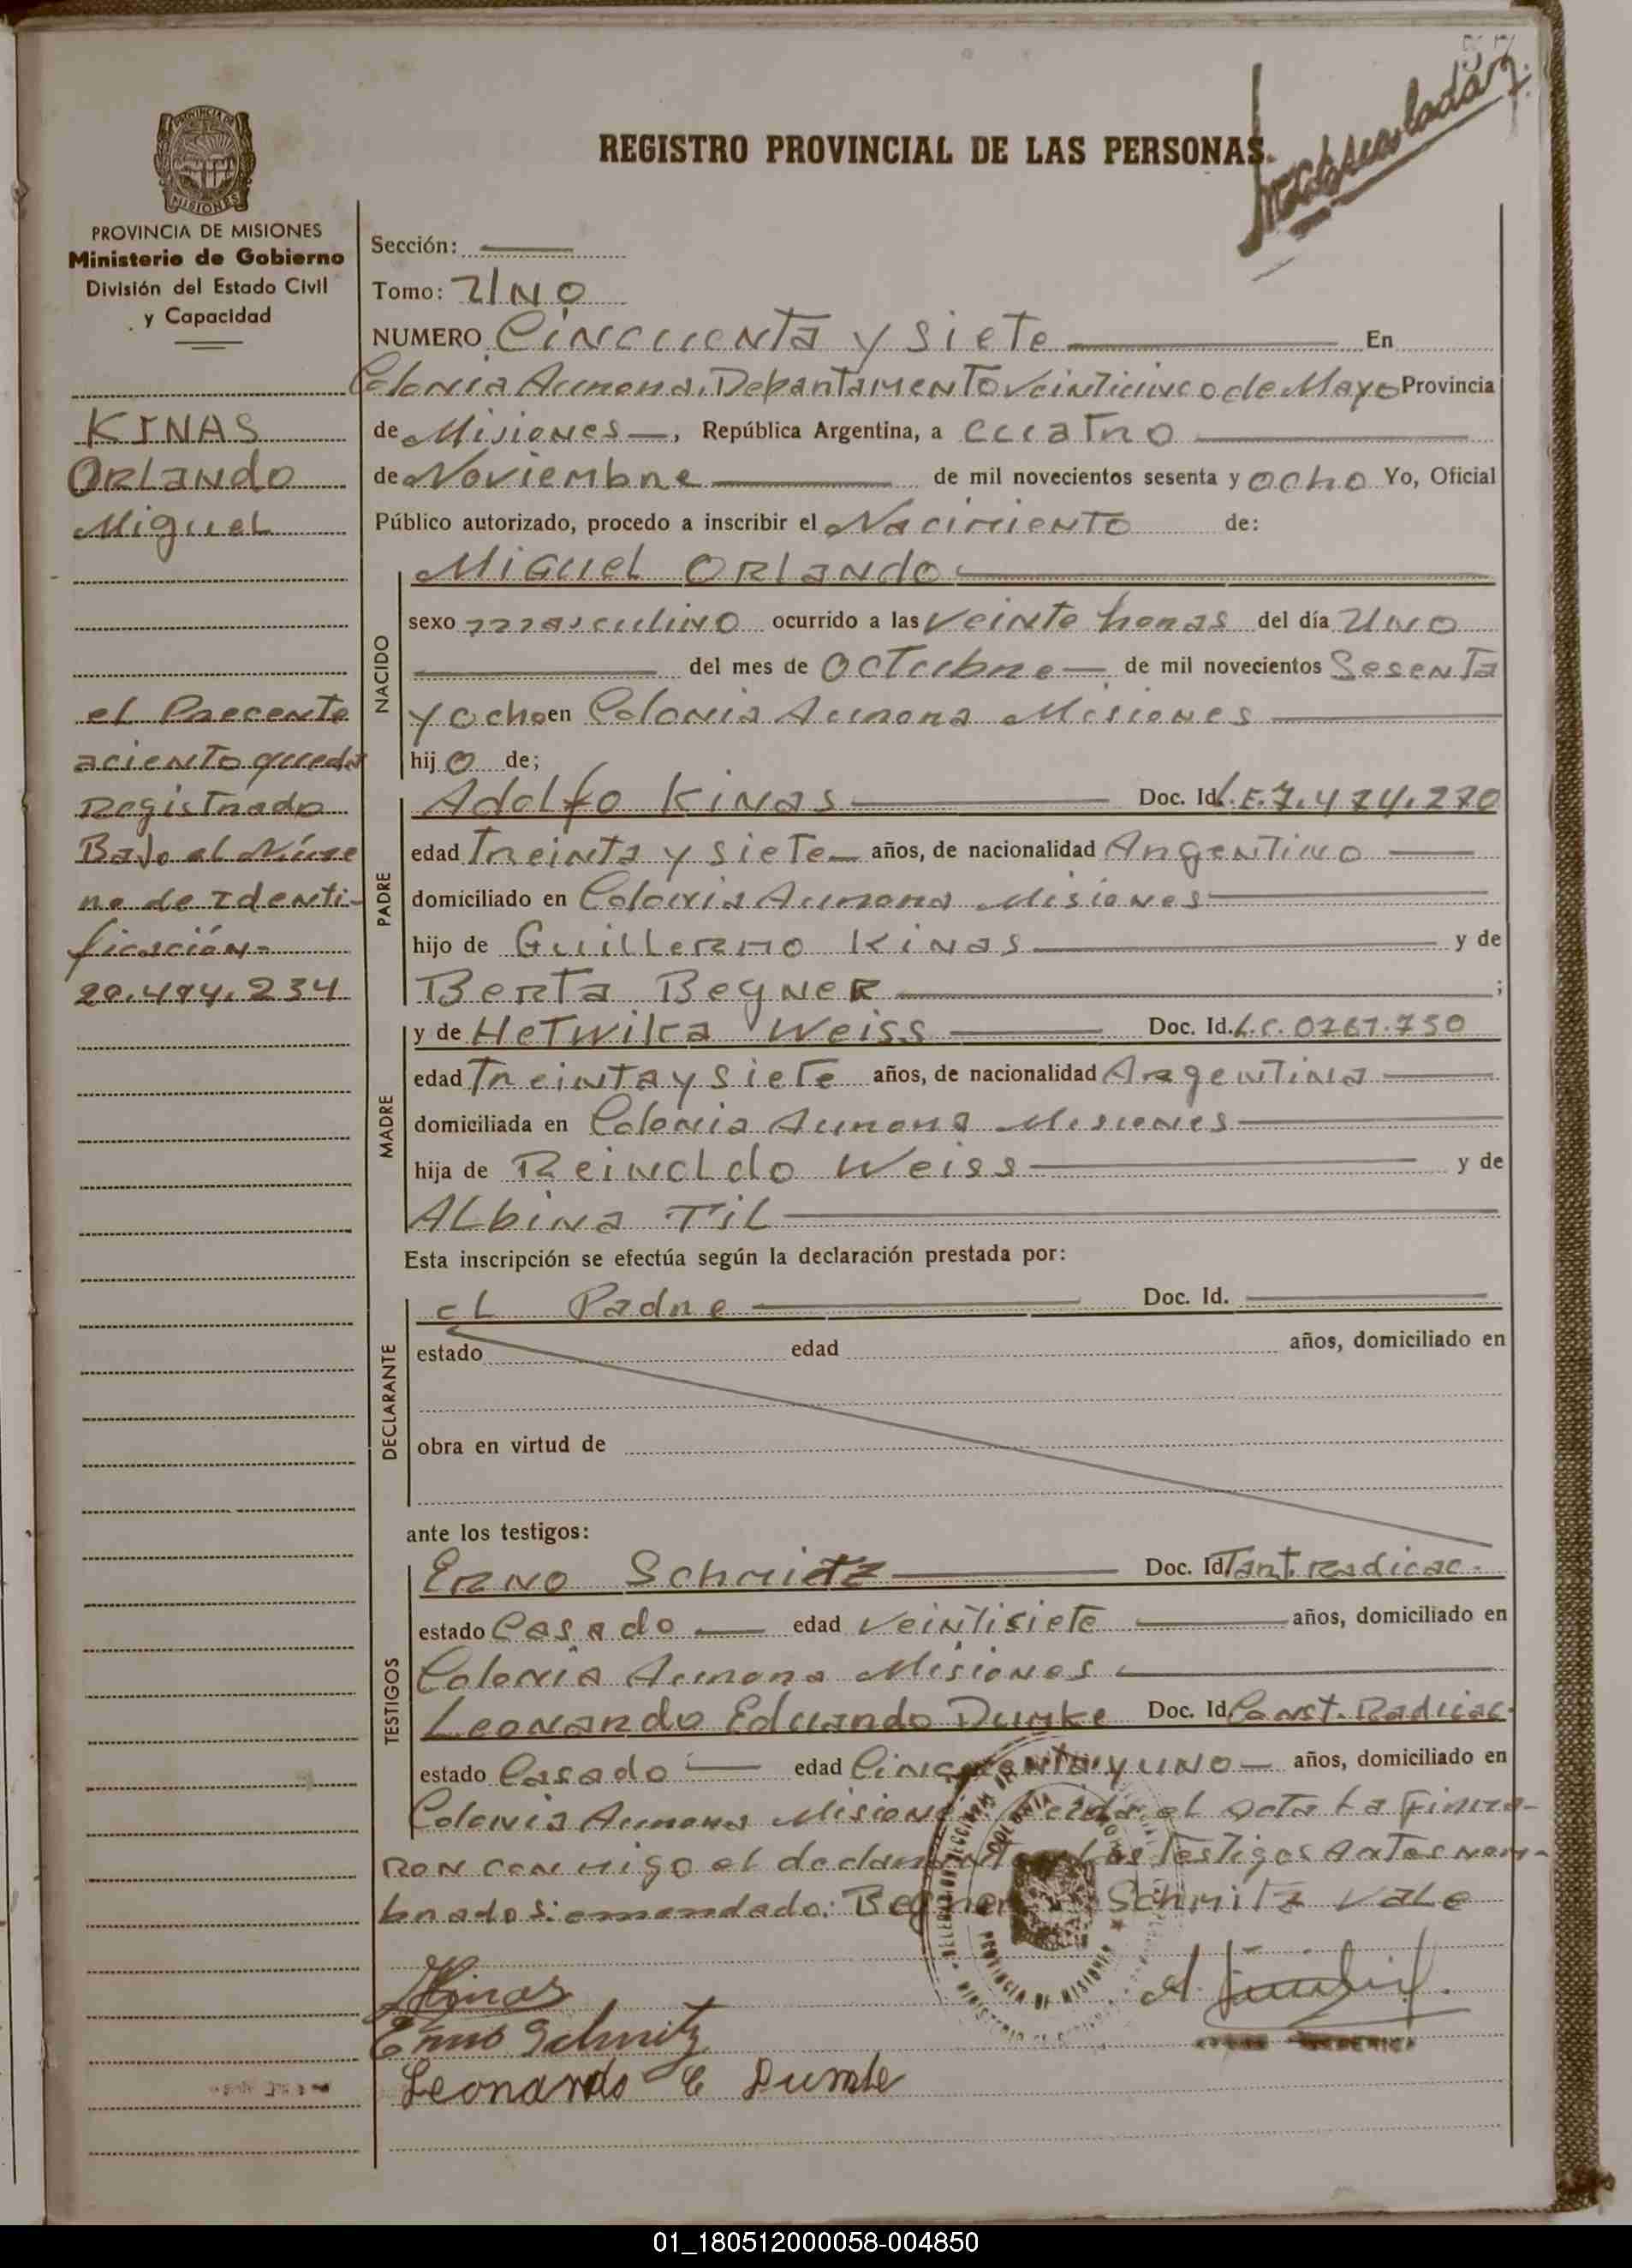 REGISTRO PROVINCIAL DE LAS PERSONAS
PROVINCIA DE
MISIONES
PROVINCIA DE MISIONES
Ministerio de Gobierno
División del Estado Civil
y Capacidad
KINAS
Orlando
Miguel
el Precente
aciento queda
Registrado
Bajo el Núme
ro de Identi-
ficación=
20.494.234
Sección:
Tomo: UNO
NUMERO Cincuenta y siete En
Colonia Aurora, Departamento Veinticinco de Mayo Provincia
de Misiones, República Argentina, a cuatro
de Noviembre de mil novecientos sesenta y ocho Yo, Oficial
Público autorizado, procedo a inscribir el Nacimiento de:
NACIDO
Miguel Orlando
sexo masculino ocurrido a las Veinte horas del día Uno
del mes de Octubre de mil novecientos Sesenta
y ocho en Colonia Aurora Misiones
hijo de;
PADRE
Adolfo Kinas Doc. Id. L.E. 7.474.270
edad Treinta y siete años, de nacionalidad Argentino
domiciliado en Colonia Aurora Misiones
hijo de Guillermo Kinas y de
Berta Begner ;
MADRE
y de Hetwika Weiss Doc. Id. L.C. 0261.750
edad Treinta y siete años, de nacionalidad Argentina
domiciliada en Colonia Aurora Misiones
hija de Reinoldo Weiss y de
Albina Til
Esta inscripción se efectúa según la declaración prestada por:
DECLARANTE
el Padre Doc. Id.
estado edad años, domiciliado en
obra en virtud de
ante los testigos:
TESTIGOS
Erno Schmitz Doc. Id. radicac.
estado Casado edad veintisiete años, domiciliado en
Colonia Aurora Misiones
Leonardo Eduardo Dumke Doc. Id. Const. Radicac.
estado Casado edad Cincuenta y uno años, domiciliado en
Colonia Aurora Misiones Leída el acta La Firma-
ron conmigo el declarante y Los Testigos antes nom-
brados: emendado: Begner Schmitz Vale
PROVINCIA DE MISIONES
Kinas
Erno Schmitz
Leonardo E Dumke
01_180512000058-004850